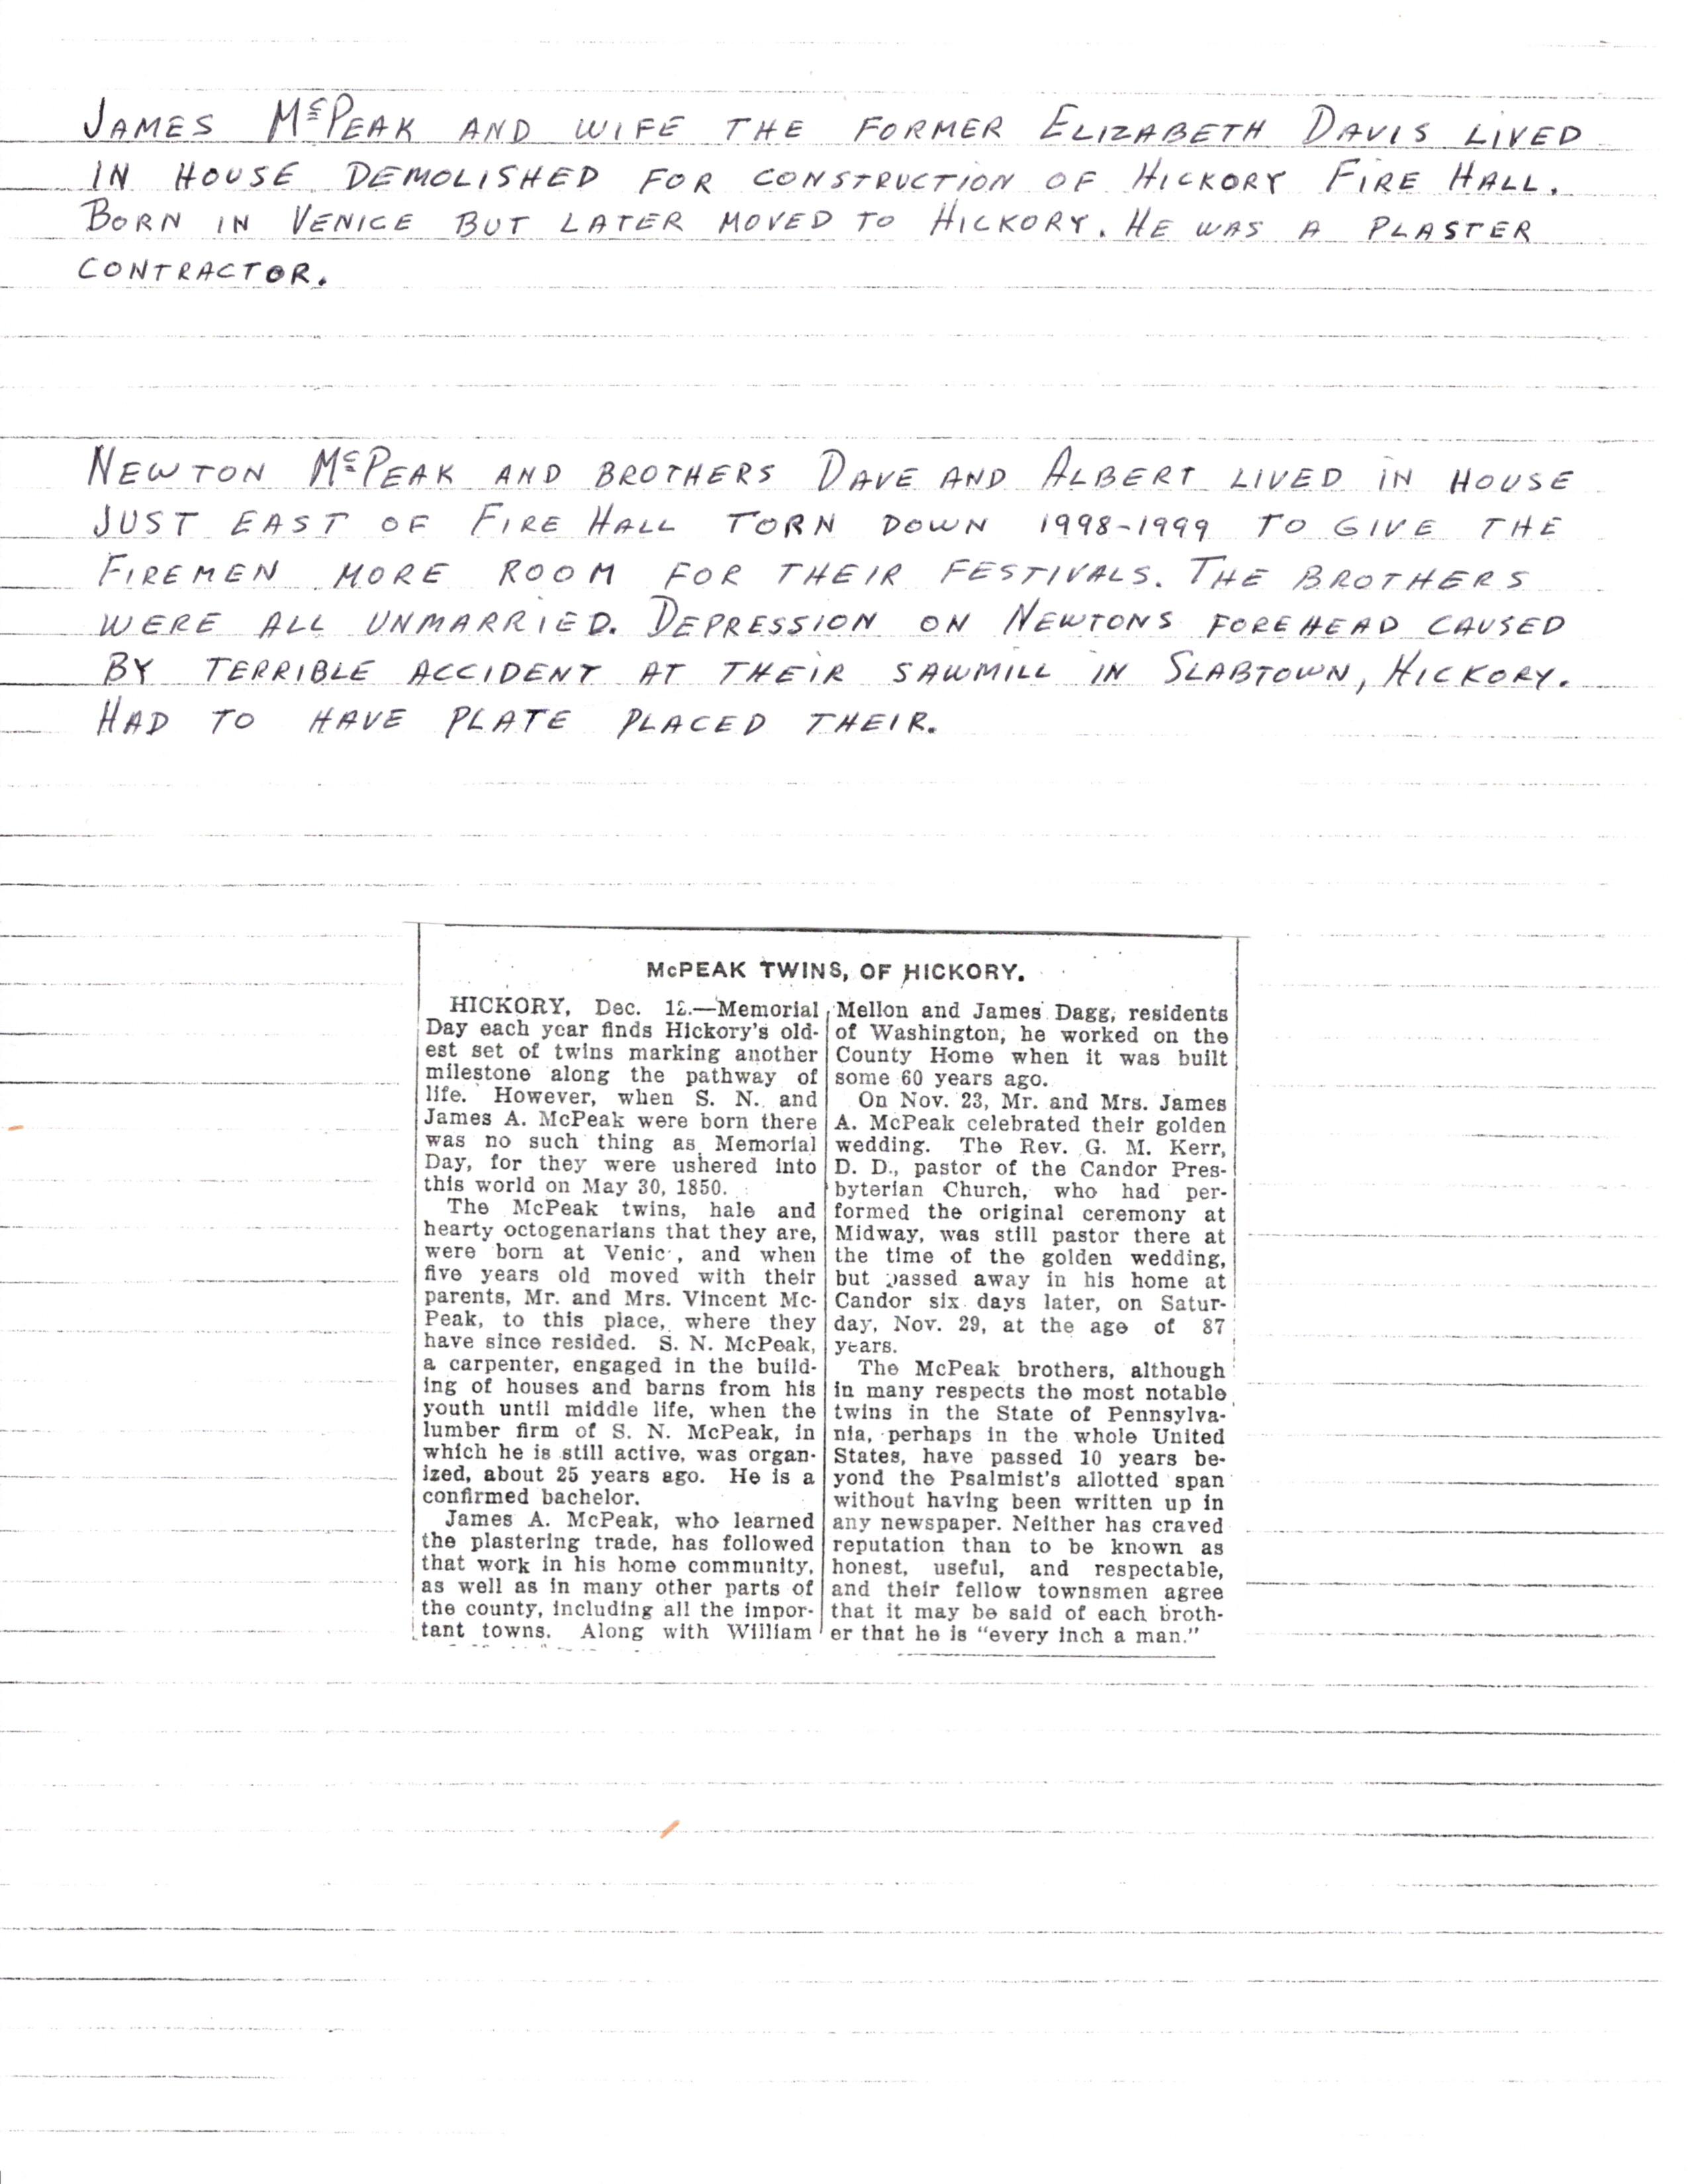 JAMES McPEAK AND WIFE THE FORMER ELIZABETH DAVIS LIVED
IN HOUSE DEMOLISHED FOR CONSTRUCTION OF HICKORY FIRE HALL.
BORN IN VENICE BUT LATER MOVED TO HICKORY. HE WAS A PLASTER
CONTRACTOR.
NEWTON McPEAK AND BROTHERS DAVE AND ALBERT LIVED IN HOUSE
JUST EAST OF FIRE HALL TORN DOWN 1998-1999 TO GIVE THE
FIREMEN MORE ROOM FOR THEIR FESTIVALS. THE BROTHERS
WERE ALL UNMARRIED. DEPRESSION ON NEWTONS FOREHEAD CAUSED
BY TERRIBLE ACCIDENT AT THEIR SAWMILL IN SLABTOWN, HICKORY.
HAD TO HAVE PLATE PLACED THEIR.
McPEAK TWINS, OF HICKORY.
HICKORY, Dec. 12.—Memorial
Day each year finds Hickory's old-
est set of twins marking another
milestone along the pathway of
life. However, when S. N. and
James A. McPeak were born there
was no such thing as Memorial
Day, for they were ushered into
this world on May 30, 1850.
The McPeak twins, hale and
hearty octogenarians that they are,
were born at Venic , and when
five years old moved with their
parents, Mr. and Mrs. Vincent Mc-
Peak, to this place, where they
have since resided. S. N. McPeak,
a carpenter, engaged in the build-
ing of houses and barns from his
youth until middle life, when the
lumber firm of S. N. McPeak, in
which he is still active, was organ-
ized, about 25 years ago. He is a
confirmed bachelor.
James A. McPeak, who learned
the plastering trade, has followed
that work in his home community,
as well as in many other parts of
the county, including all the impor-
tant towns. Along with William
Mellon and James Dagg, residents
of Washington, he worked on the
County Home when it was built
some 60 years ago.
On Nov. 23, Mr. and Mrs. James
A. McPeak celebrated their golden
wedding. The Rev. G. M. Kerr,
D. D., pastor of the Candor Pres-
byterian Church, who had per-
formed the original ceremony at
Midway, was still pastor there at
the time of the golden wedding,
but passed away in his home at
Candor six days later, on Satur-
day, Nov. 29, at the age of 87
years.
The McPeak brothers, although
in many respects the most notable
twins in the State of Pennsylva-
nia, perhaps in the whole United
States, have passed 10 years be-
yond the Psalmist's allotted span
without having been written up in
any newspaper. Neither has craved
reputation than to be known as
honest, useful, and respectable,
and their fellow townsmen agree
that it may be said of each broth-
er that he is "every inch a man."